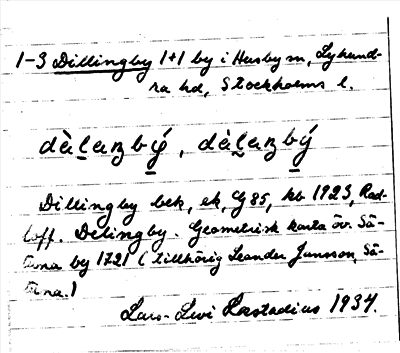 1-3 Dillingby 1+1 by i Husby sn, Lyhund-
ra hd, Stockholms l.
dàḷaꞑbý, dàḷaꞑbý
Dillingby bek, ek, G 85, kb 1923, Rad-
loff. Delingby. Geometrisk karta öv. Sä-
tuna by 1721 (tillhörig Leander Jansson, Sä-
tuna.)
Lars-Levi Læstadius 1934.